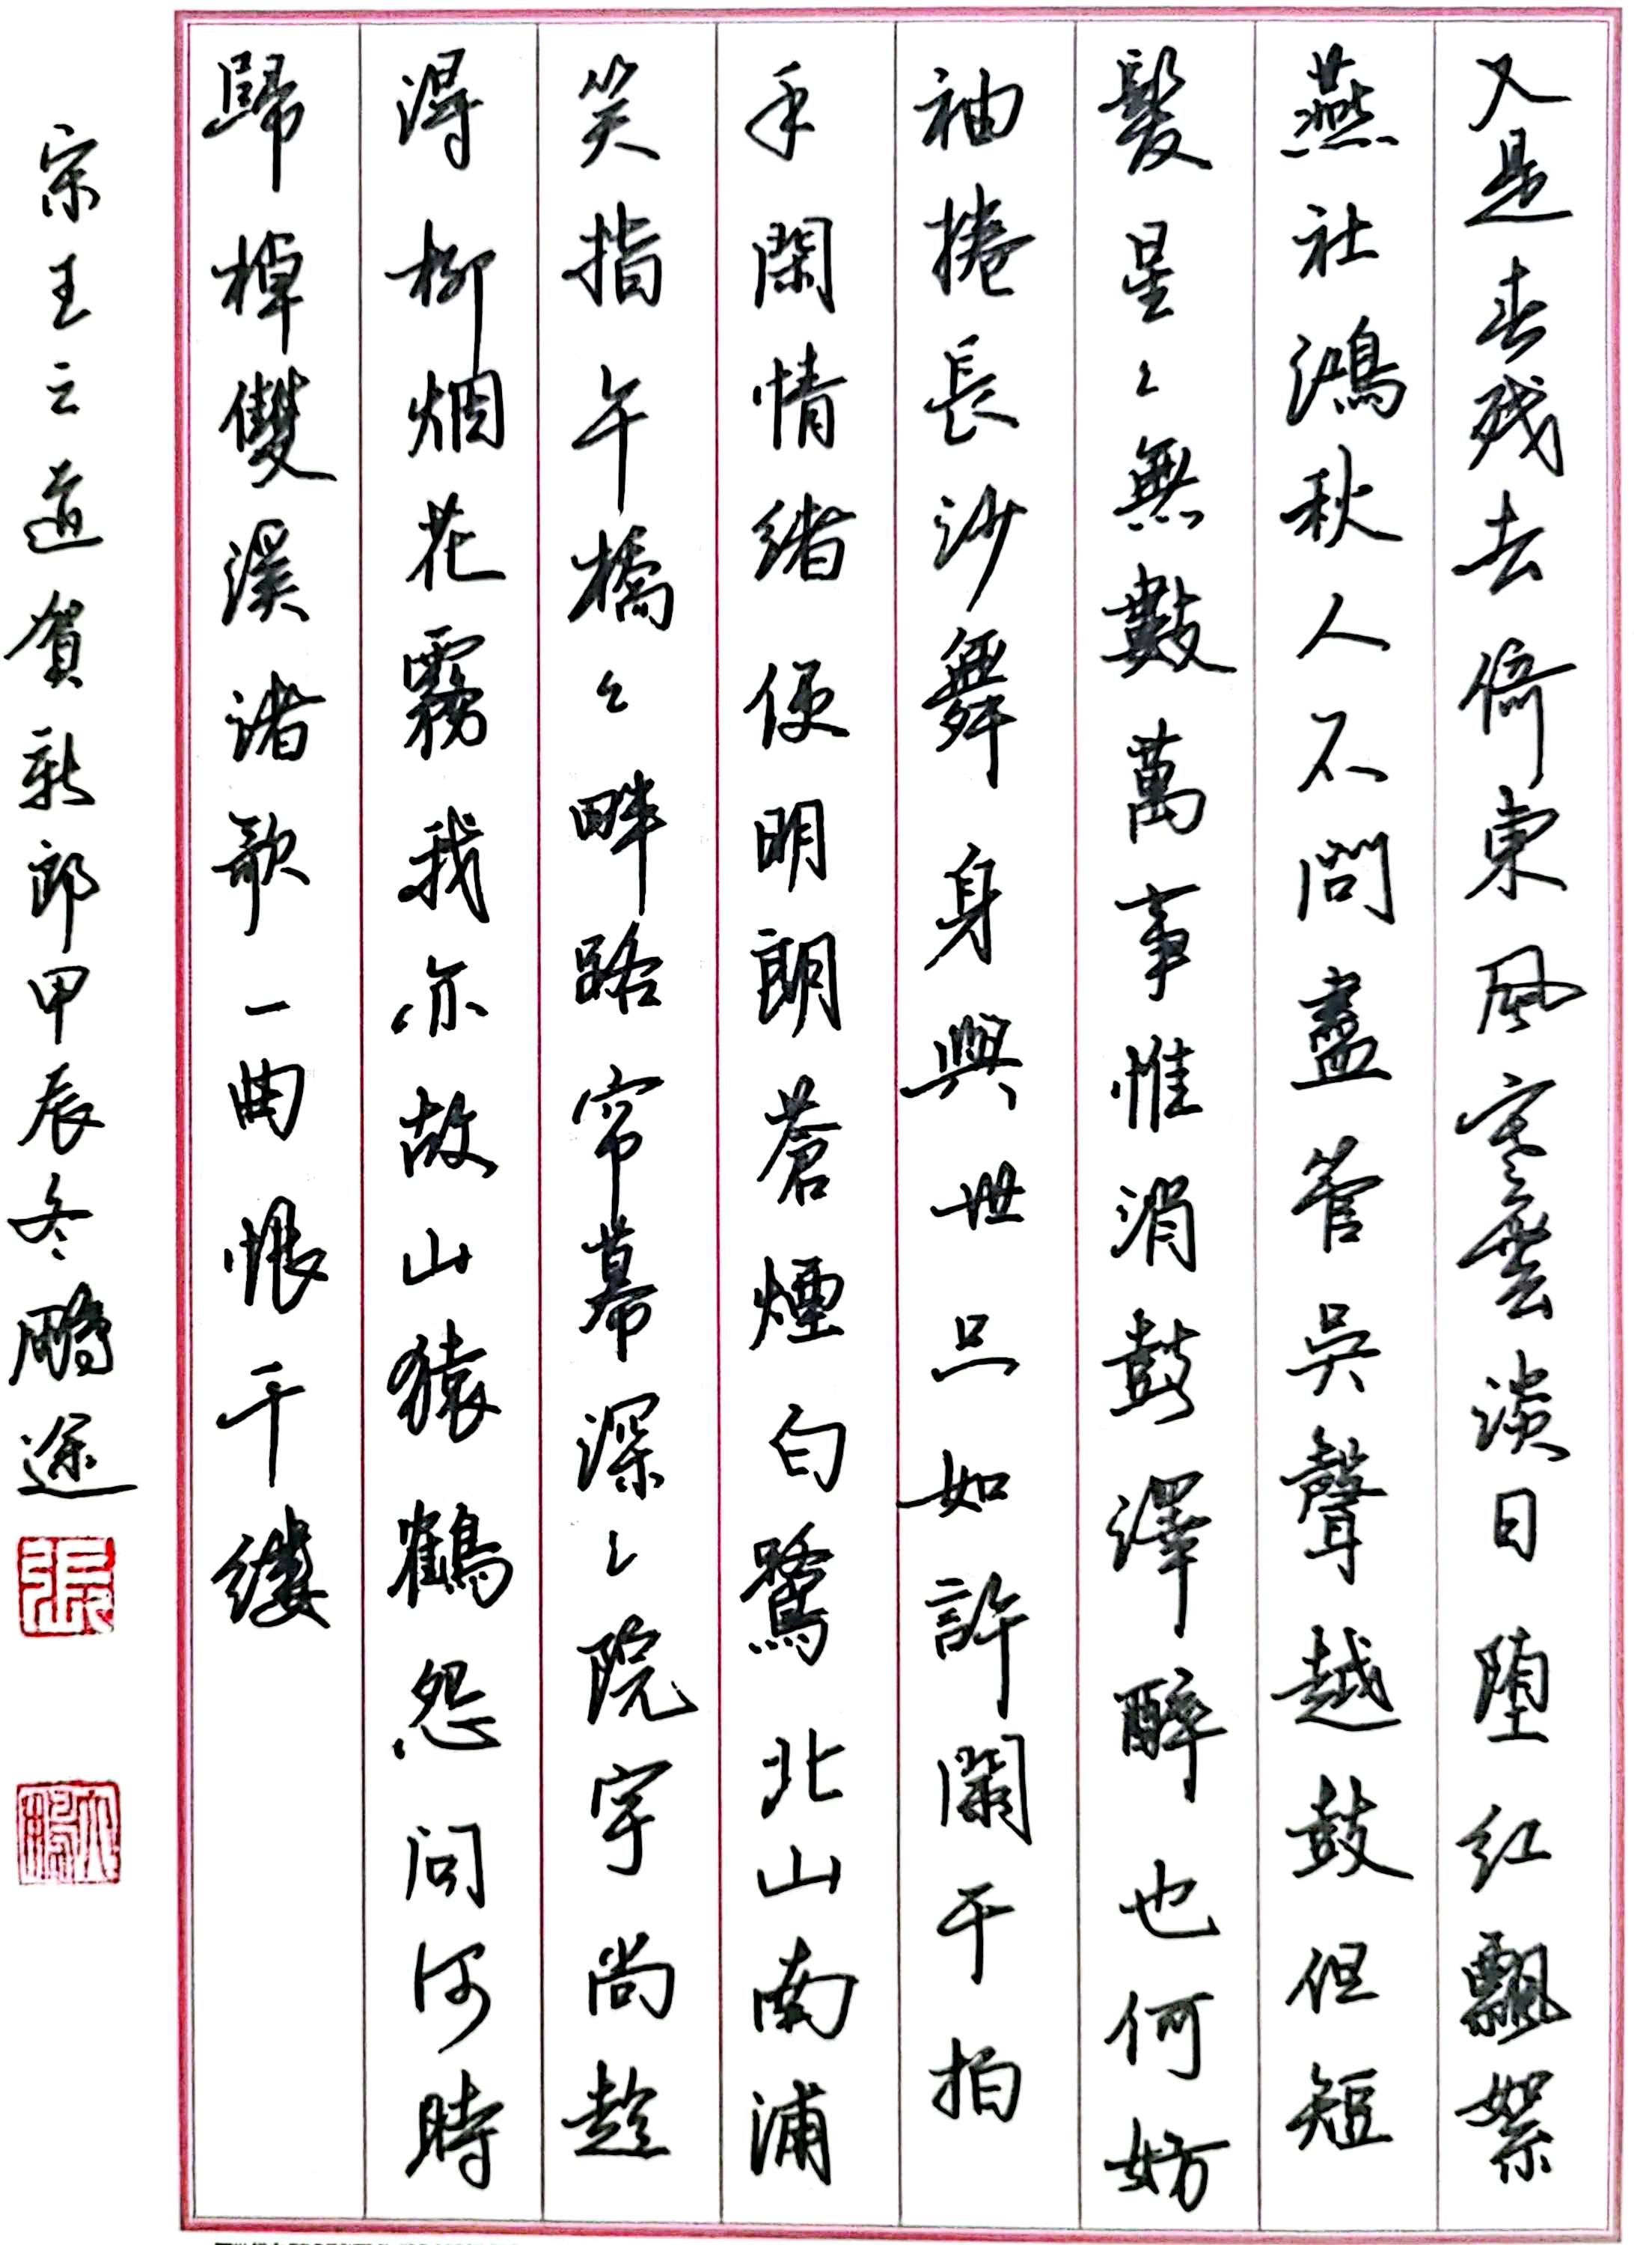 又是春残去倚東風寒雲淡日堕红飄絮
燕社鴻秋人不問盡管吳聲越鼓但短
髮星〻無數萬事惟消彭澤醉也何妨
袖捲長沙舞身與世只如許闌干拍
手閑情緒便明朗蒼煙白鷺北山南浦
笑指午橋〻畔路帘幕深〻院宇尚趁
得柳烟花霧我亦故山猿鶴怨问何時
歸棹雙溪渚歌一曲恨千缕
宋王之道贺新郎甲辰冬鵬途
張